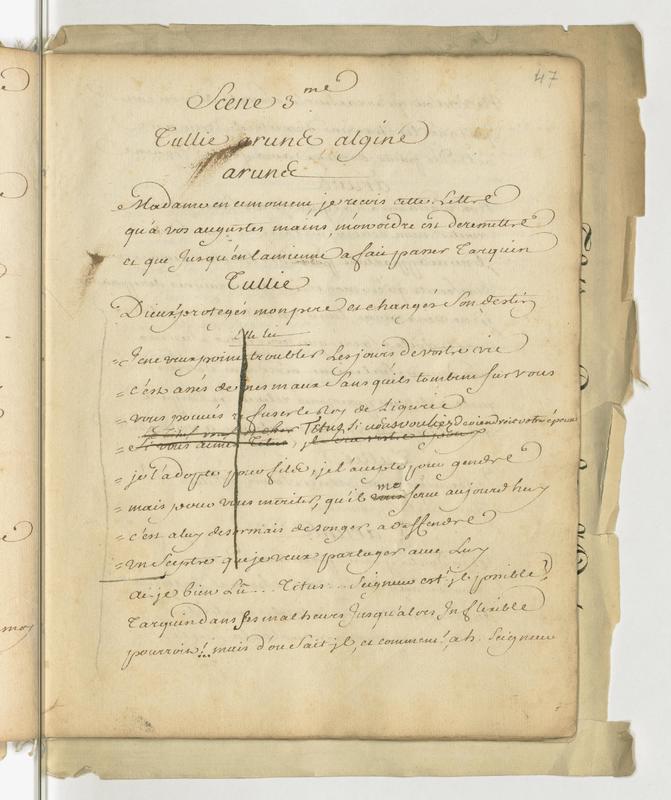 47
Scene 3.me
Tullie arunce algine
arunce
Madame en ce moment, je recois cette Lettre
qu'à vos augustes mains, mon ordre est de remettre
et que jusqu'en la mienne a fait passer Tarquin
Tullie
Dieux! protegés mon pere et changés son destin
elle lit
=Je ne veux point troubler les jours de vostre vie
=c'est assés de mes maux sans qu'ils tombent sur vous
=vous pouvés refuser le Roy de Ligurie
Titus, si vous voulies deviendroit votre epoux
=Si vous aimés Titus, il sera vostre Epoux
=je l'adopte pour fils, je l'accepte pour gendre
=mais pour vous meriter, qu'il vous me serve aujourd'huy
=c'est a luy desormais de songer a deffendre
=un Sceptre que je veux partager avec Luy
ai-je bien Lû... Titus... Seigneur est-il possible?
Tarquin dans ses malheurs jusqu'alors Inflexible
pourroit!... mais d'ou sait-il, et comment! ah. Seigneur